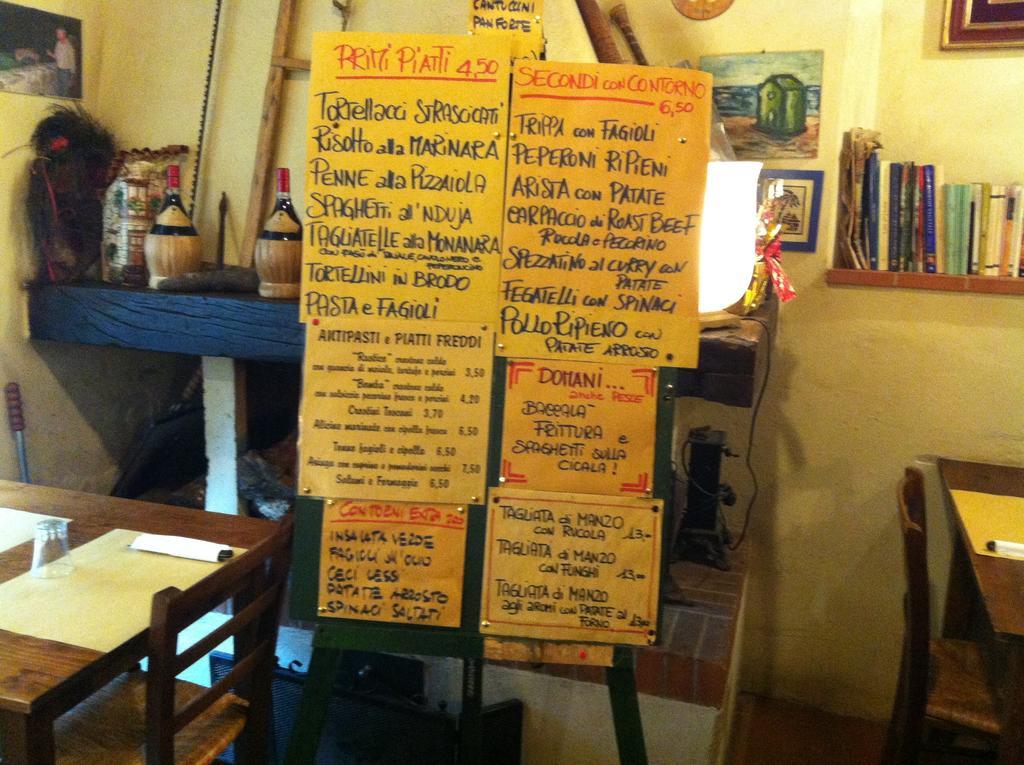 CANTUCCINI
PANFORTE
PRIMI PIATTI 4,50
TORTELLACCI STRASCICATI
RISOTTO alla MARINARA
PENNE alla PIZZAIOLA
SPAGHETTI all'NDUJA
TAGLIATELLE alla MONANARA
TORTELLINI in BRODO
PASTA e FAGIOLI
SECONDI con CONTORNO
6,50
TRIPPA con FAGIOLI
PEPERONI RIPIENI
ARISTA con PATATE
CARPACCIO di ROAST BEEF
RUCOLA e PECORINO
SPEZZATINO al CURRY con
PATATE
FEGATELLI con SPINACI
POLLO RIPIENO con
PATATE ARROSTO
ANTIPASTI e PIATTI FREDDI
"Rustico" crostone caldo
con guancia di maiale, tartufo e porcini 3,50
"Bomba" crostone caldo
con salsiccia pecorino fresco e porcini 4,20
Crostini Toscani 3,70
Alicine marinate con cipolla fresca 6,50
Tonno fagioli e cipolla 6,50
Asiago con caprino e pomodorini secchi 7,50
Salumi e Formaggio 6,50
DOMANI...
anche PESCE
BACCALA'
FRITTURA e
SPAGHETTI SULLA
CICALA!
CONTORNI EXTRA
INSALATA VERDE
FAGIOLI ALL'OLIO
CECI LESSI
PATATE ARROSTO
SPINACI SALTATI
TAGLIATA di MANZO
CON RUCOLA 13,-
TAGLIATA di MANZO
CON FUNGHI 13,00
TAGLIATA di MANZO
agli aromi con PATATE al
FORNO 13,00